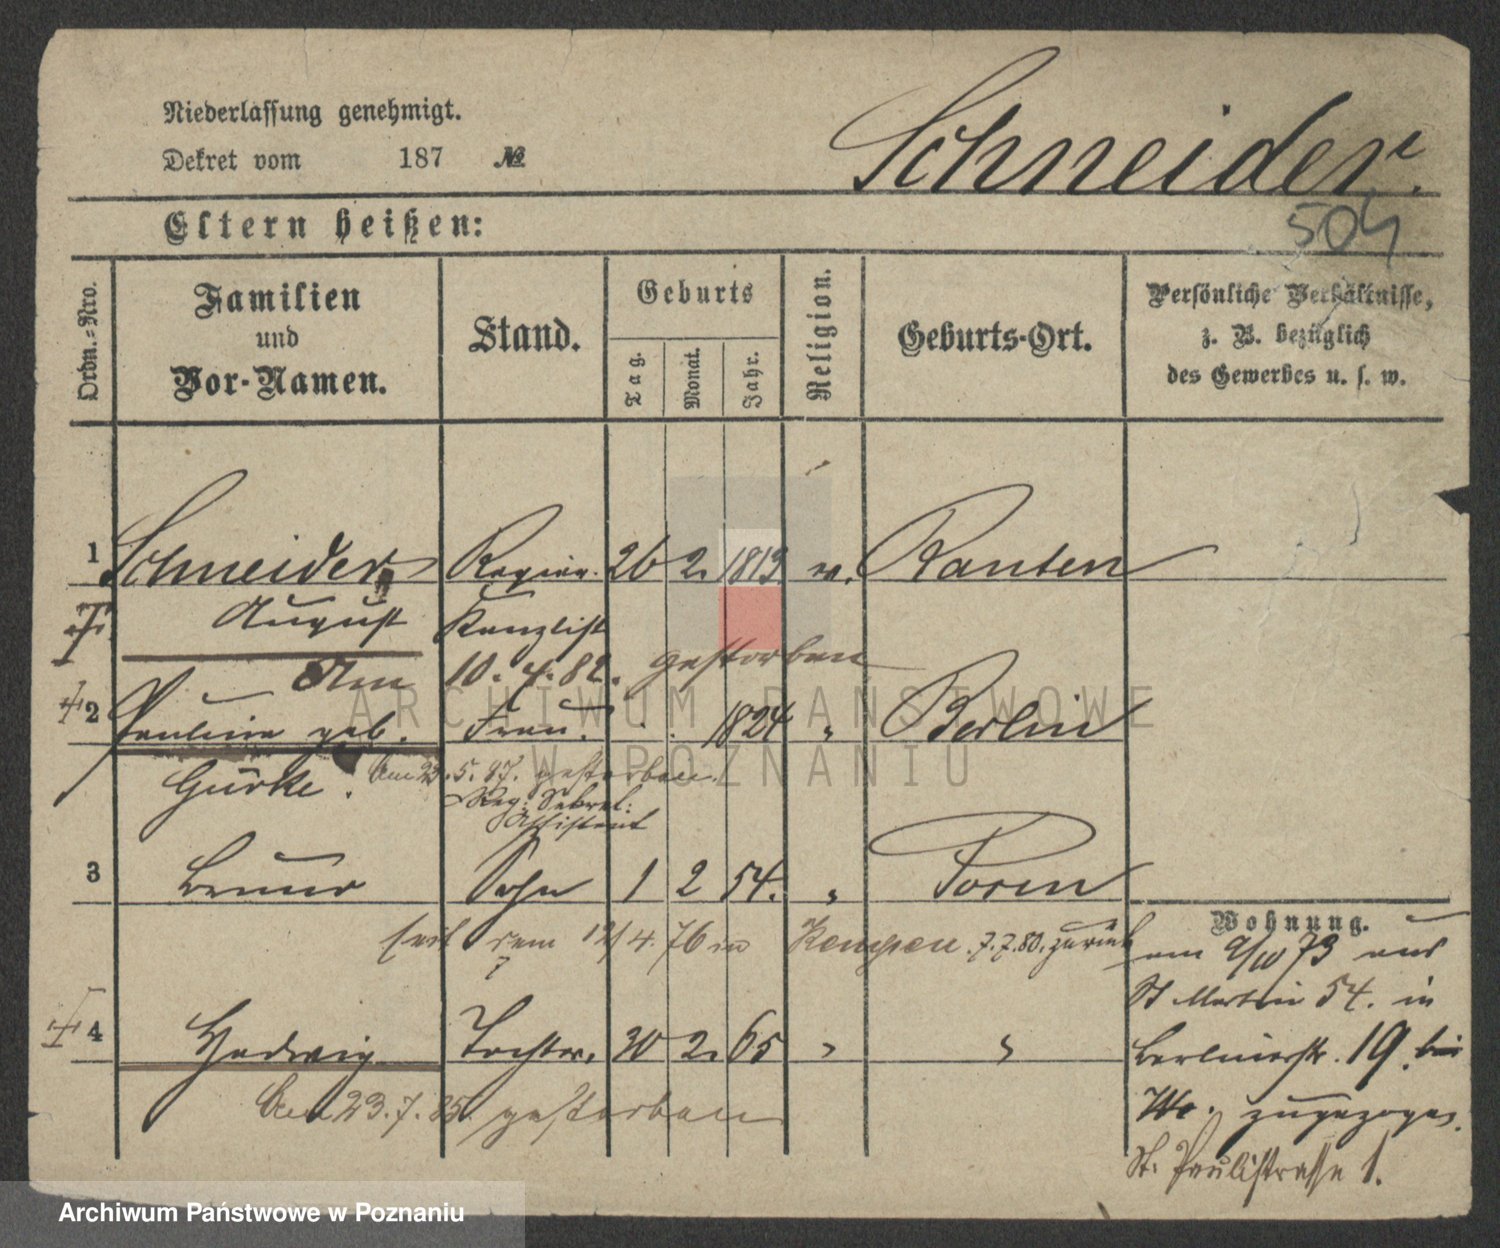 Niederlassung genehmigt.
Dekret vom 187 №
Schneider.
Eltern heißen:
504
Ordn.-Nro.
Familien
und
Vor-Namen.
Stand.
Geburts
Tag.
Monat.
Jahr.
Religion.
Geburts-Ort.
Persönliche Verhältnisse,
z. B. bezüglich
des Gewerbes u. s. w.
1 Schneider Regier. 26 2. 1813 ev.
August Kanzlist
Am 10. 4. 82. gestorben
2 Pauline geb. Frau. 1824 " Berlin
Gürke. Am 23. 5. 87. gestorben.
Reg: Sekret:
Assistent
3 Bruno Sohn 1 2 54. " Posen
seit dem 12/4. 76 in Kempen. 7.7.80. zurück
4 Hedwig Tochter. 30 2. 65 " "
Am 23. 7. 85. gestorben
Wohnung.
am 9/10 73 aus
St Martin 54. in
Berlinerstr. 19. bei
zugezogen.
St. Paulistrasse 1.
ARCHIWUM PAŃSTWOWE
W POZNANIU
Archiwum Państwowe w Poznaniu